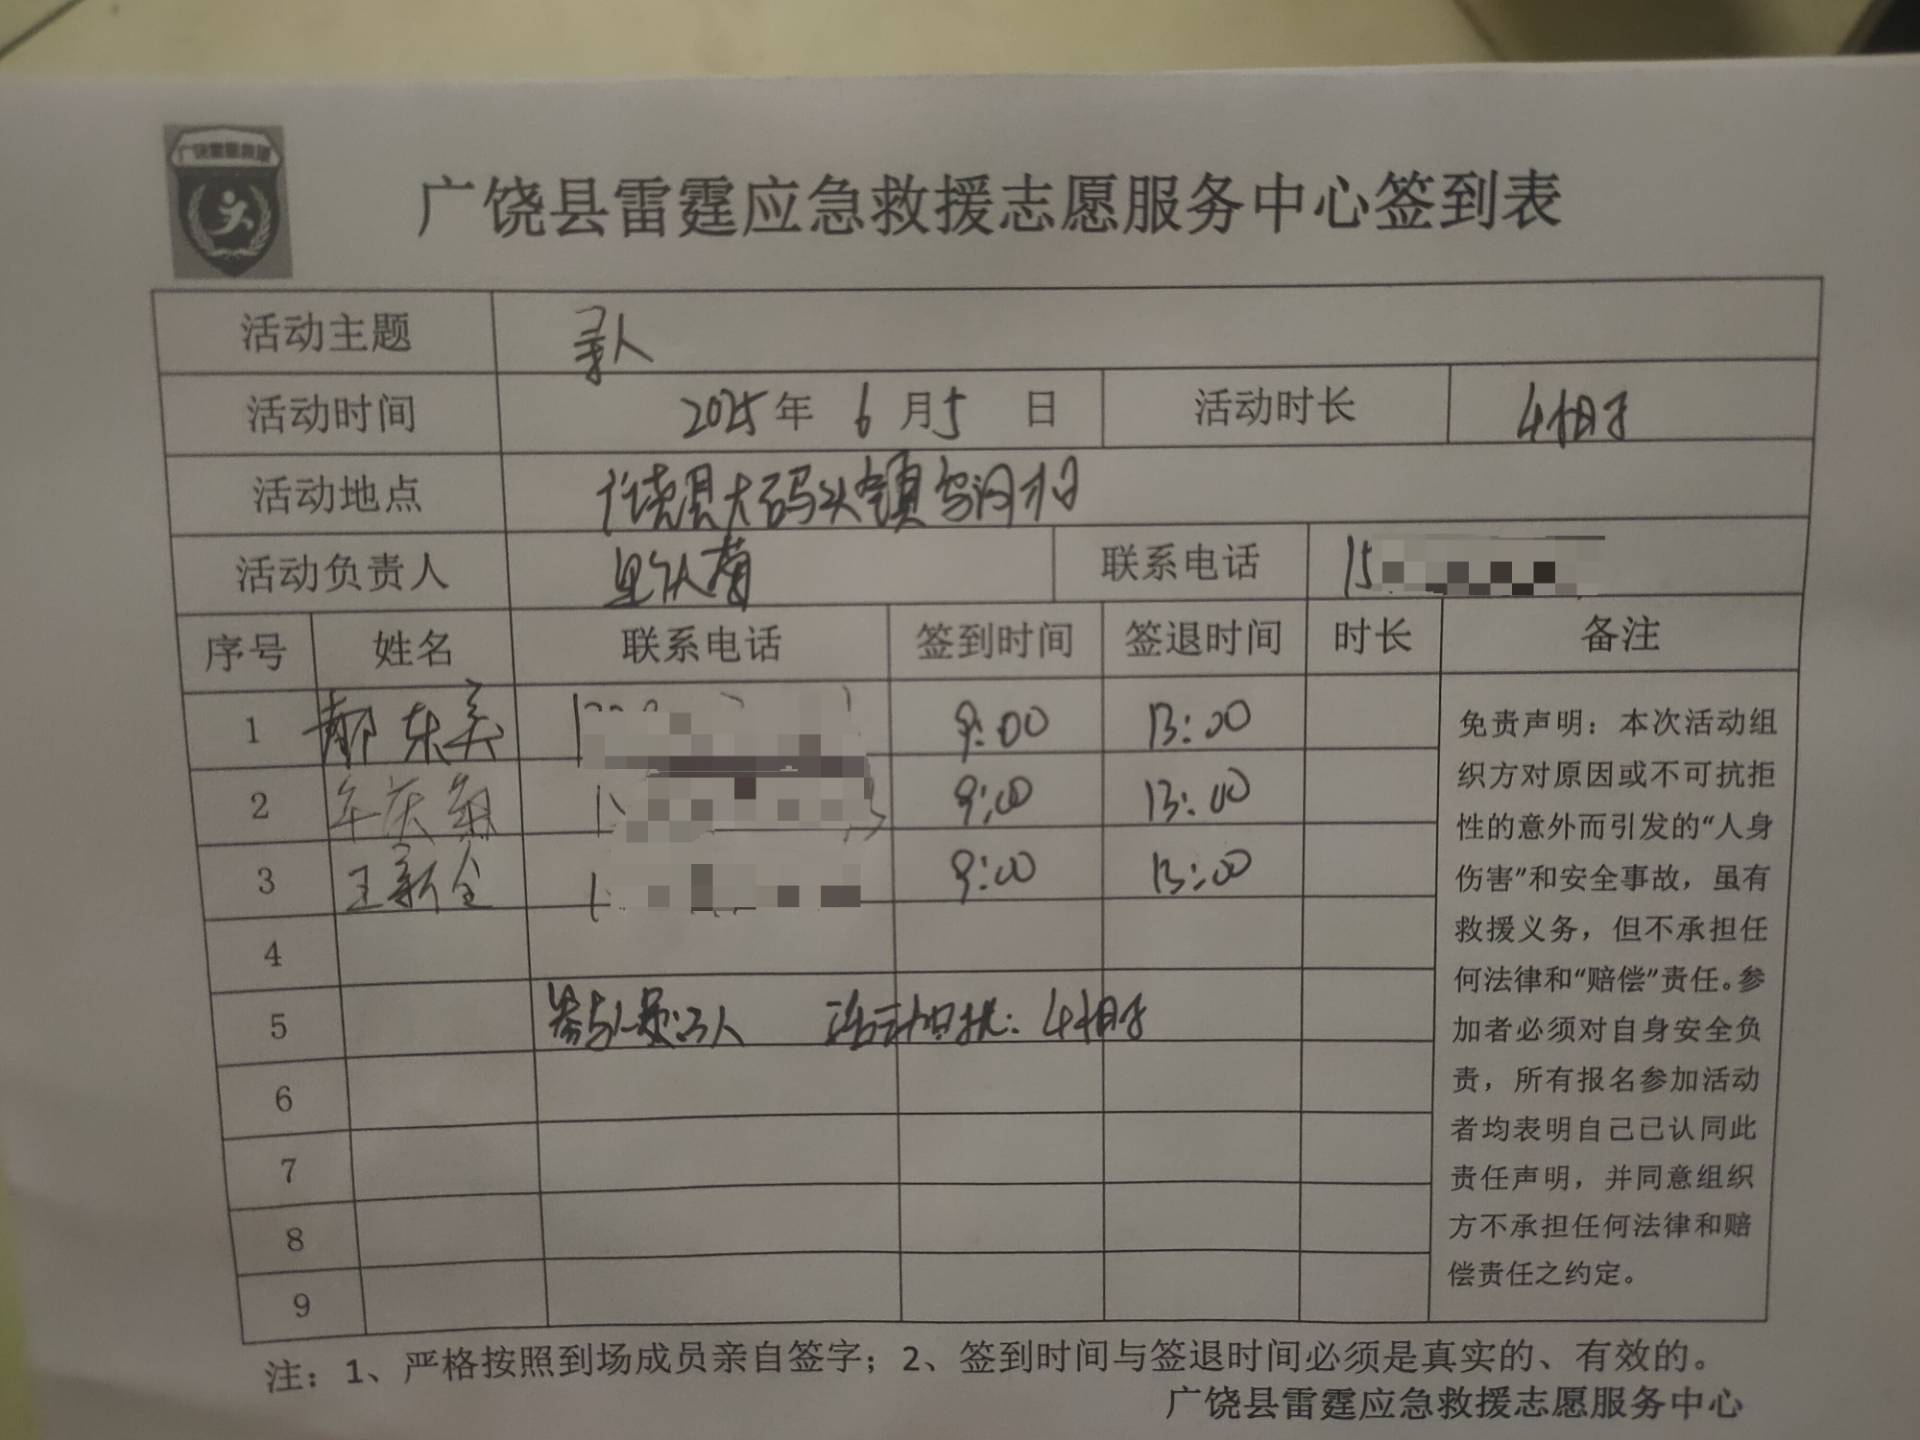 广饶雷霆救援
广饶县雷霆应急救援志愿服务中心签到表
活动主题 寻人
活动时间 2025年 6月5 日 活动时长 4小时
活动地点 广饶县大码头镇
活动负责人 联系电话 15
序号 姓名 联系电话 签到时间 签退时间 时长 备注
1 郝东美 9:00 13:00
2 9:00 13:00
3 王新全 9:00 13:00
4
5 参与人员:3人 活动时长:4小时
6
7
8
9
免责声明：本次活动组
织方对原因或不可抗拒
性的意外而引发的“人身
伤害”和安全事故，虽有
救援义务，但不承担任
何法律和“赔偿”责任。参
加者必须对自身安全负
责，所有报名参加活动
者均表明自己已认同此
责任声明，并同意组织
方不承担任何法律和赔
偿责任之约定。
注：1、严格按照到场成员亲自签字；2、签到时间与签退时间必须是真实的、有效的。
广饶县雷霆应急救援志愿服务中心